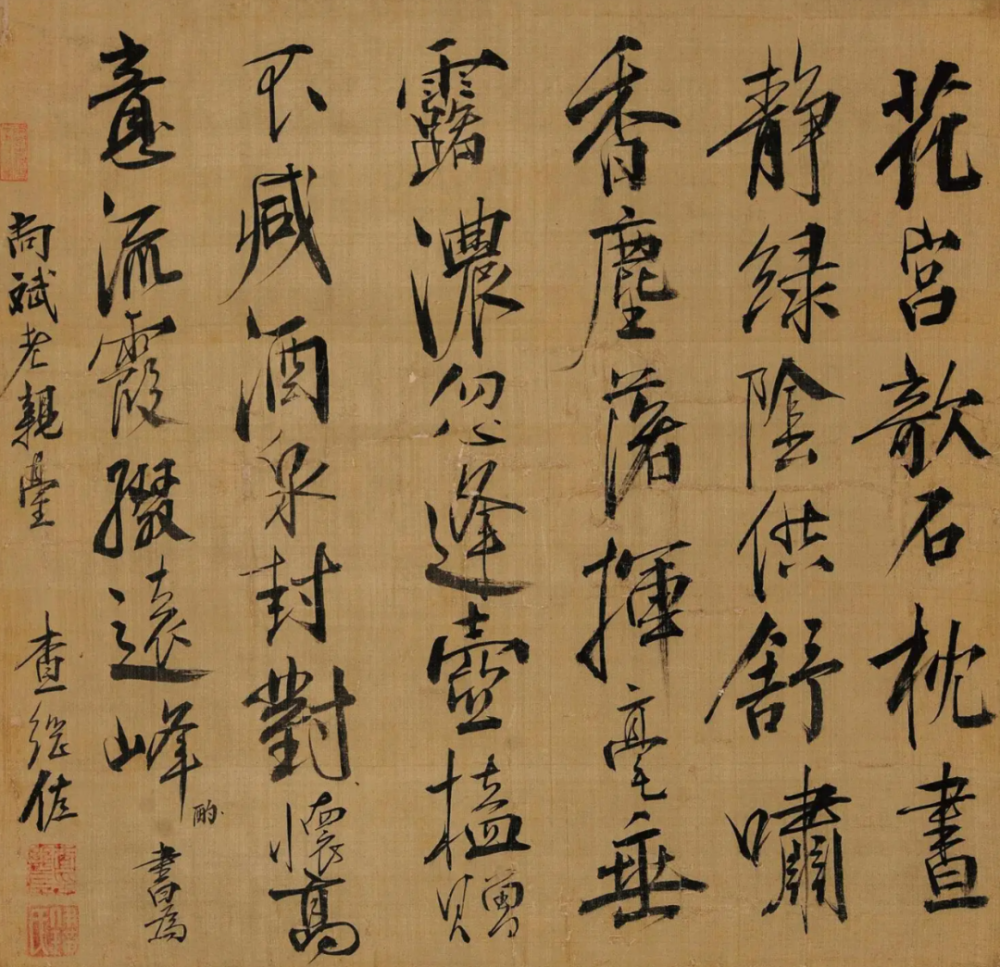 花宮欹石枕晝
靜綠陰供舒嘯
香塵落揮毫垂
露濃忽逢壺榼贈
不減酒泉封對懷高
意流霞綴遠峰酌書為
尚斌老親臺 查繼佐